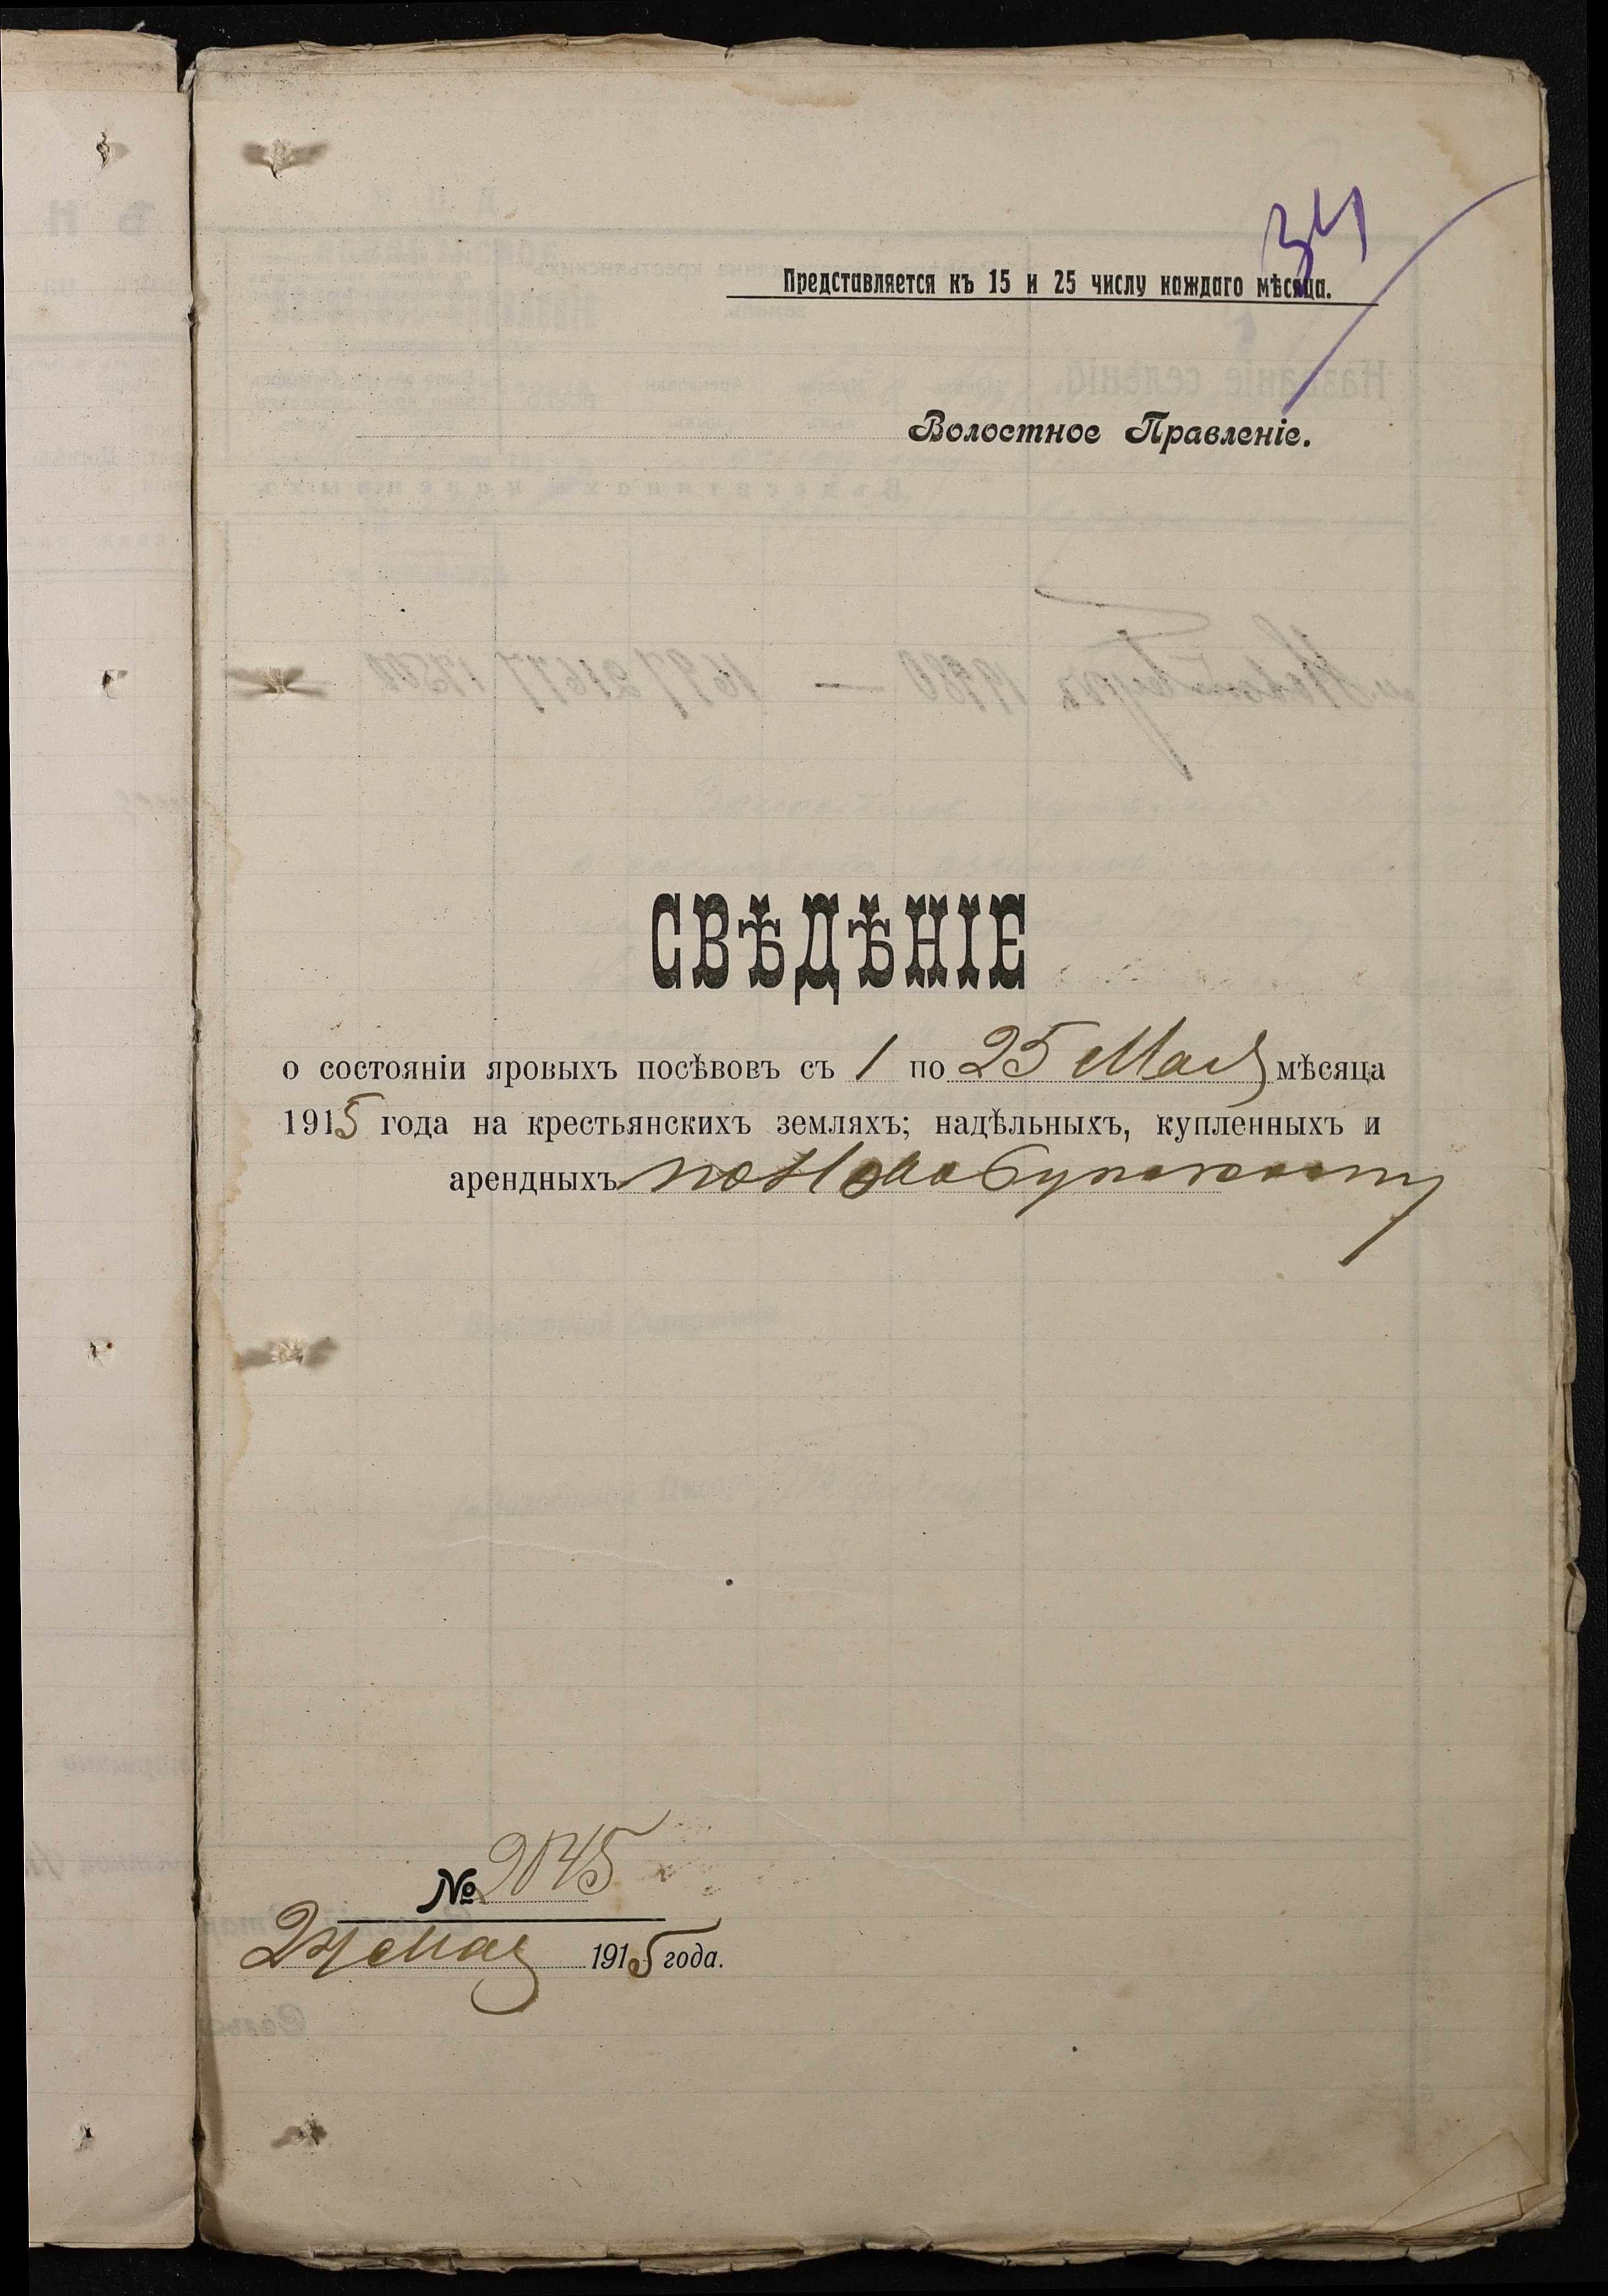 34
Представляется къ 15 и 25 числу каждаго мѣсяца.
Волостное Правленіе.
СВѢДѢНІЕ
о состояніи яровыхъ посѣвовъ съ 1 по 25 Мая мѣсяца
1915 года на крестьянскихъ земляхъ; надѣльныхъ, купленныхъ и
арендныхъ по Новобугскому
№ 2045
24 Мая 1915 года.